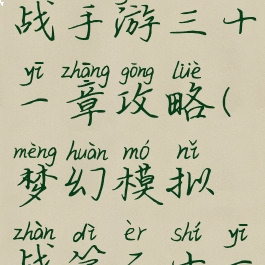 战手游三十
yī zhāng gōng lüè
一章攻略(
mèng huàn mó nǐ
梦幻模拟
zhàn dì èr shí yī
战第二十一